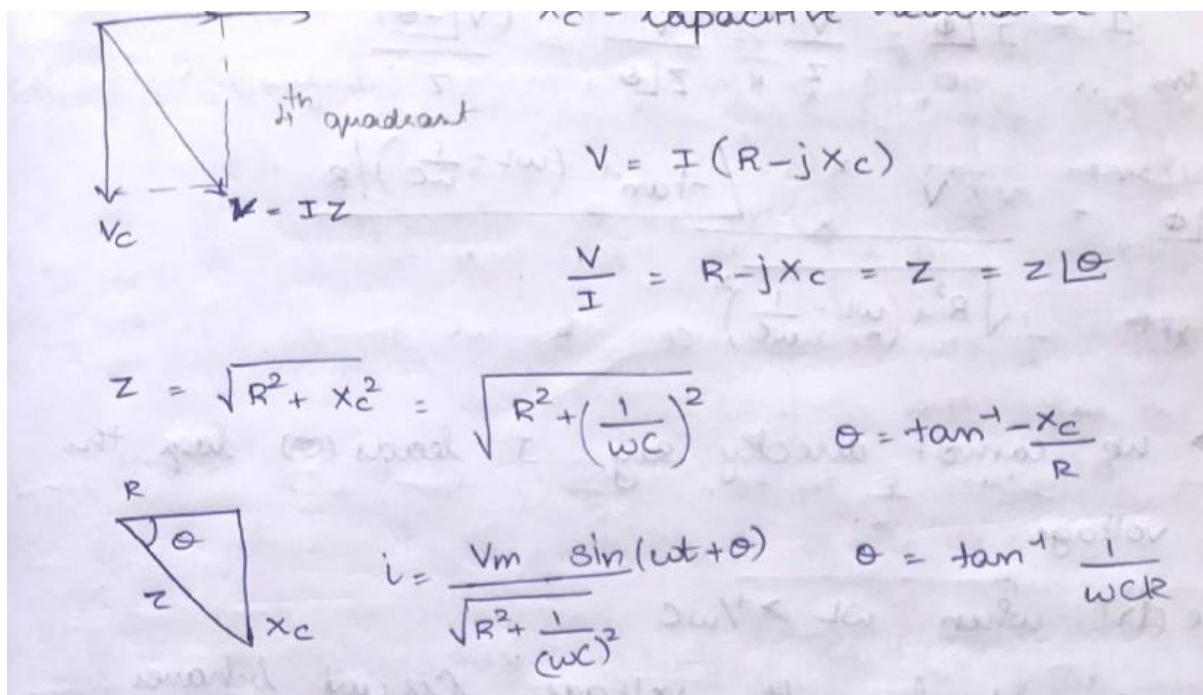 Xc - capacitive
4th quadrant
V = I (R - jXc)
V = IZ
Vc
V/I = R - jXc = Z = Z∠θ
Z = √(R² + Xc²) = √(R² + (1/ωC)²)
θ = tan⁻¹ -Xc/R
R
θ
Z
Xc
i = Vm sin(ωt + θ) / √(R² + 1/(ωC)²)
θ = tan⁻¹ 1/ωCR